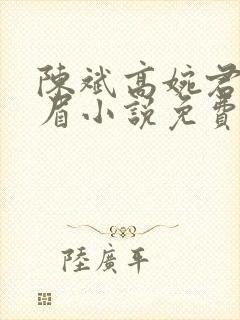 陳斌高婉君
眉小說免費
陸廣平